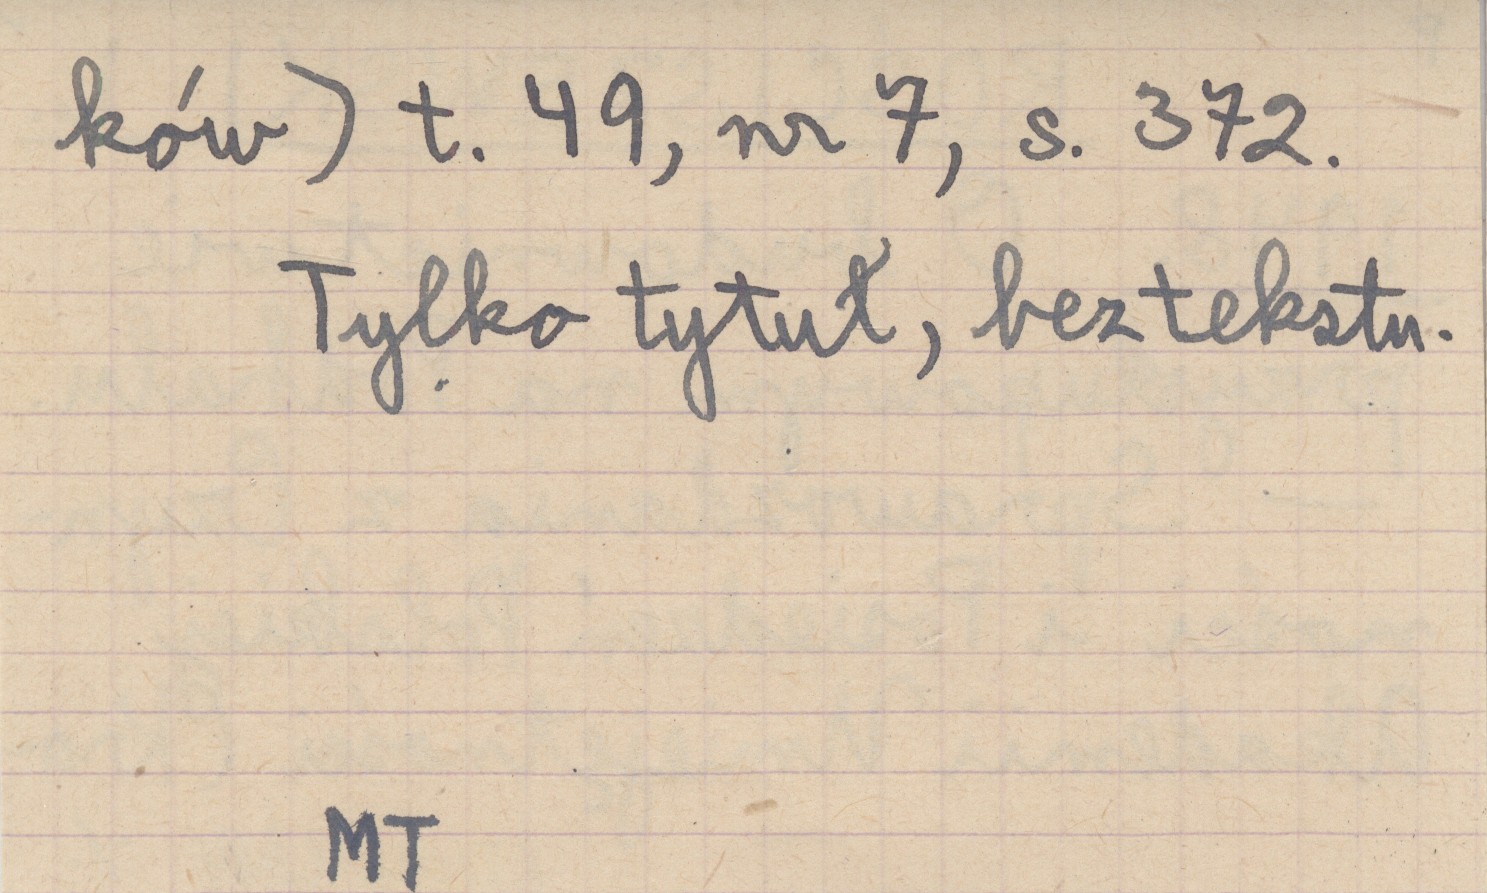 ków) t. 49, nr 7, s. 372.
Tylko tytuł, bez tekstu.
MT